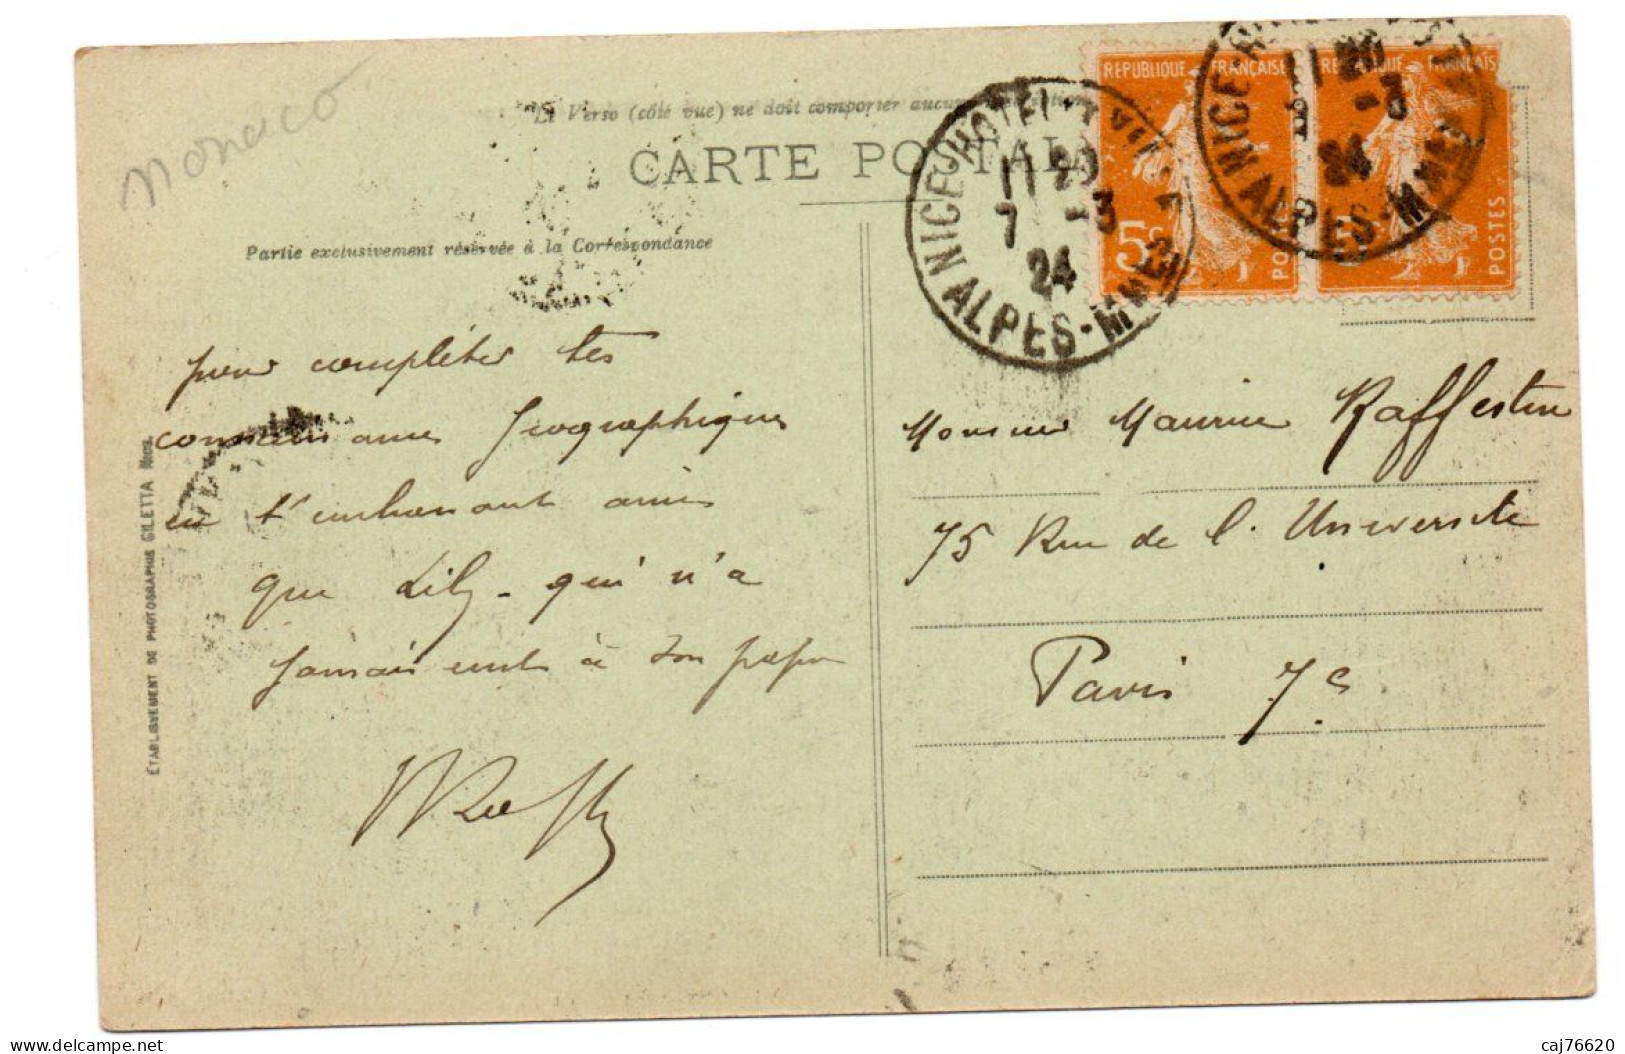 Monaco
Le Verso (côté vue) ne doit comporter aucu
CARTE POSTALE
Partie exclusivement réservée à la Correspondance
REPUBLIQUE FRANÇAISE
5c
POSTES
FRANÇAIS
POSTES
NICE HOTEL
11 20
7 -3
24
ALPES-MMES
NICE
20
-3
24
ALPES-MMES
pour compléter tes
connaissances Géographiques
en t'embrassant ainsi
que Lily - qui n'a
jamais écrit à son papa
Monsieur Maurice Raffestin
75 Rue de l'Université
Paris 7e
ÉTABLISSEMENT DE PHOTOGRAPHIE GILETTA NICE
delcampe.net
caj76620